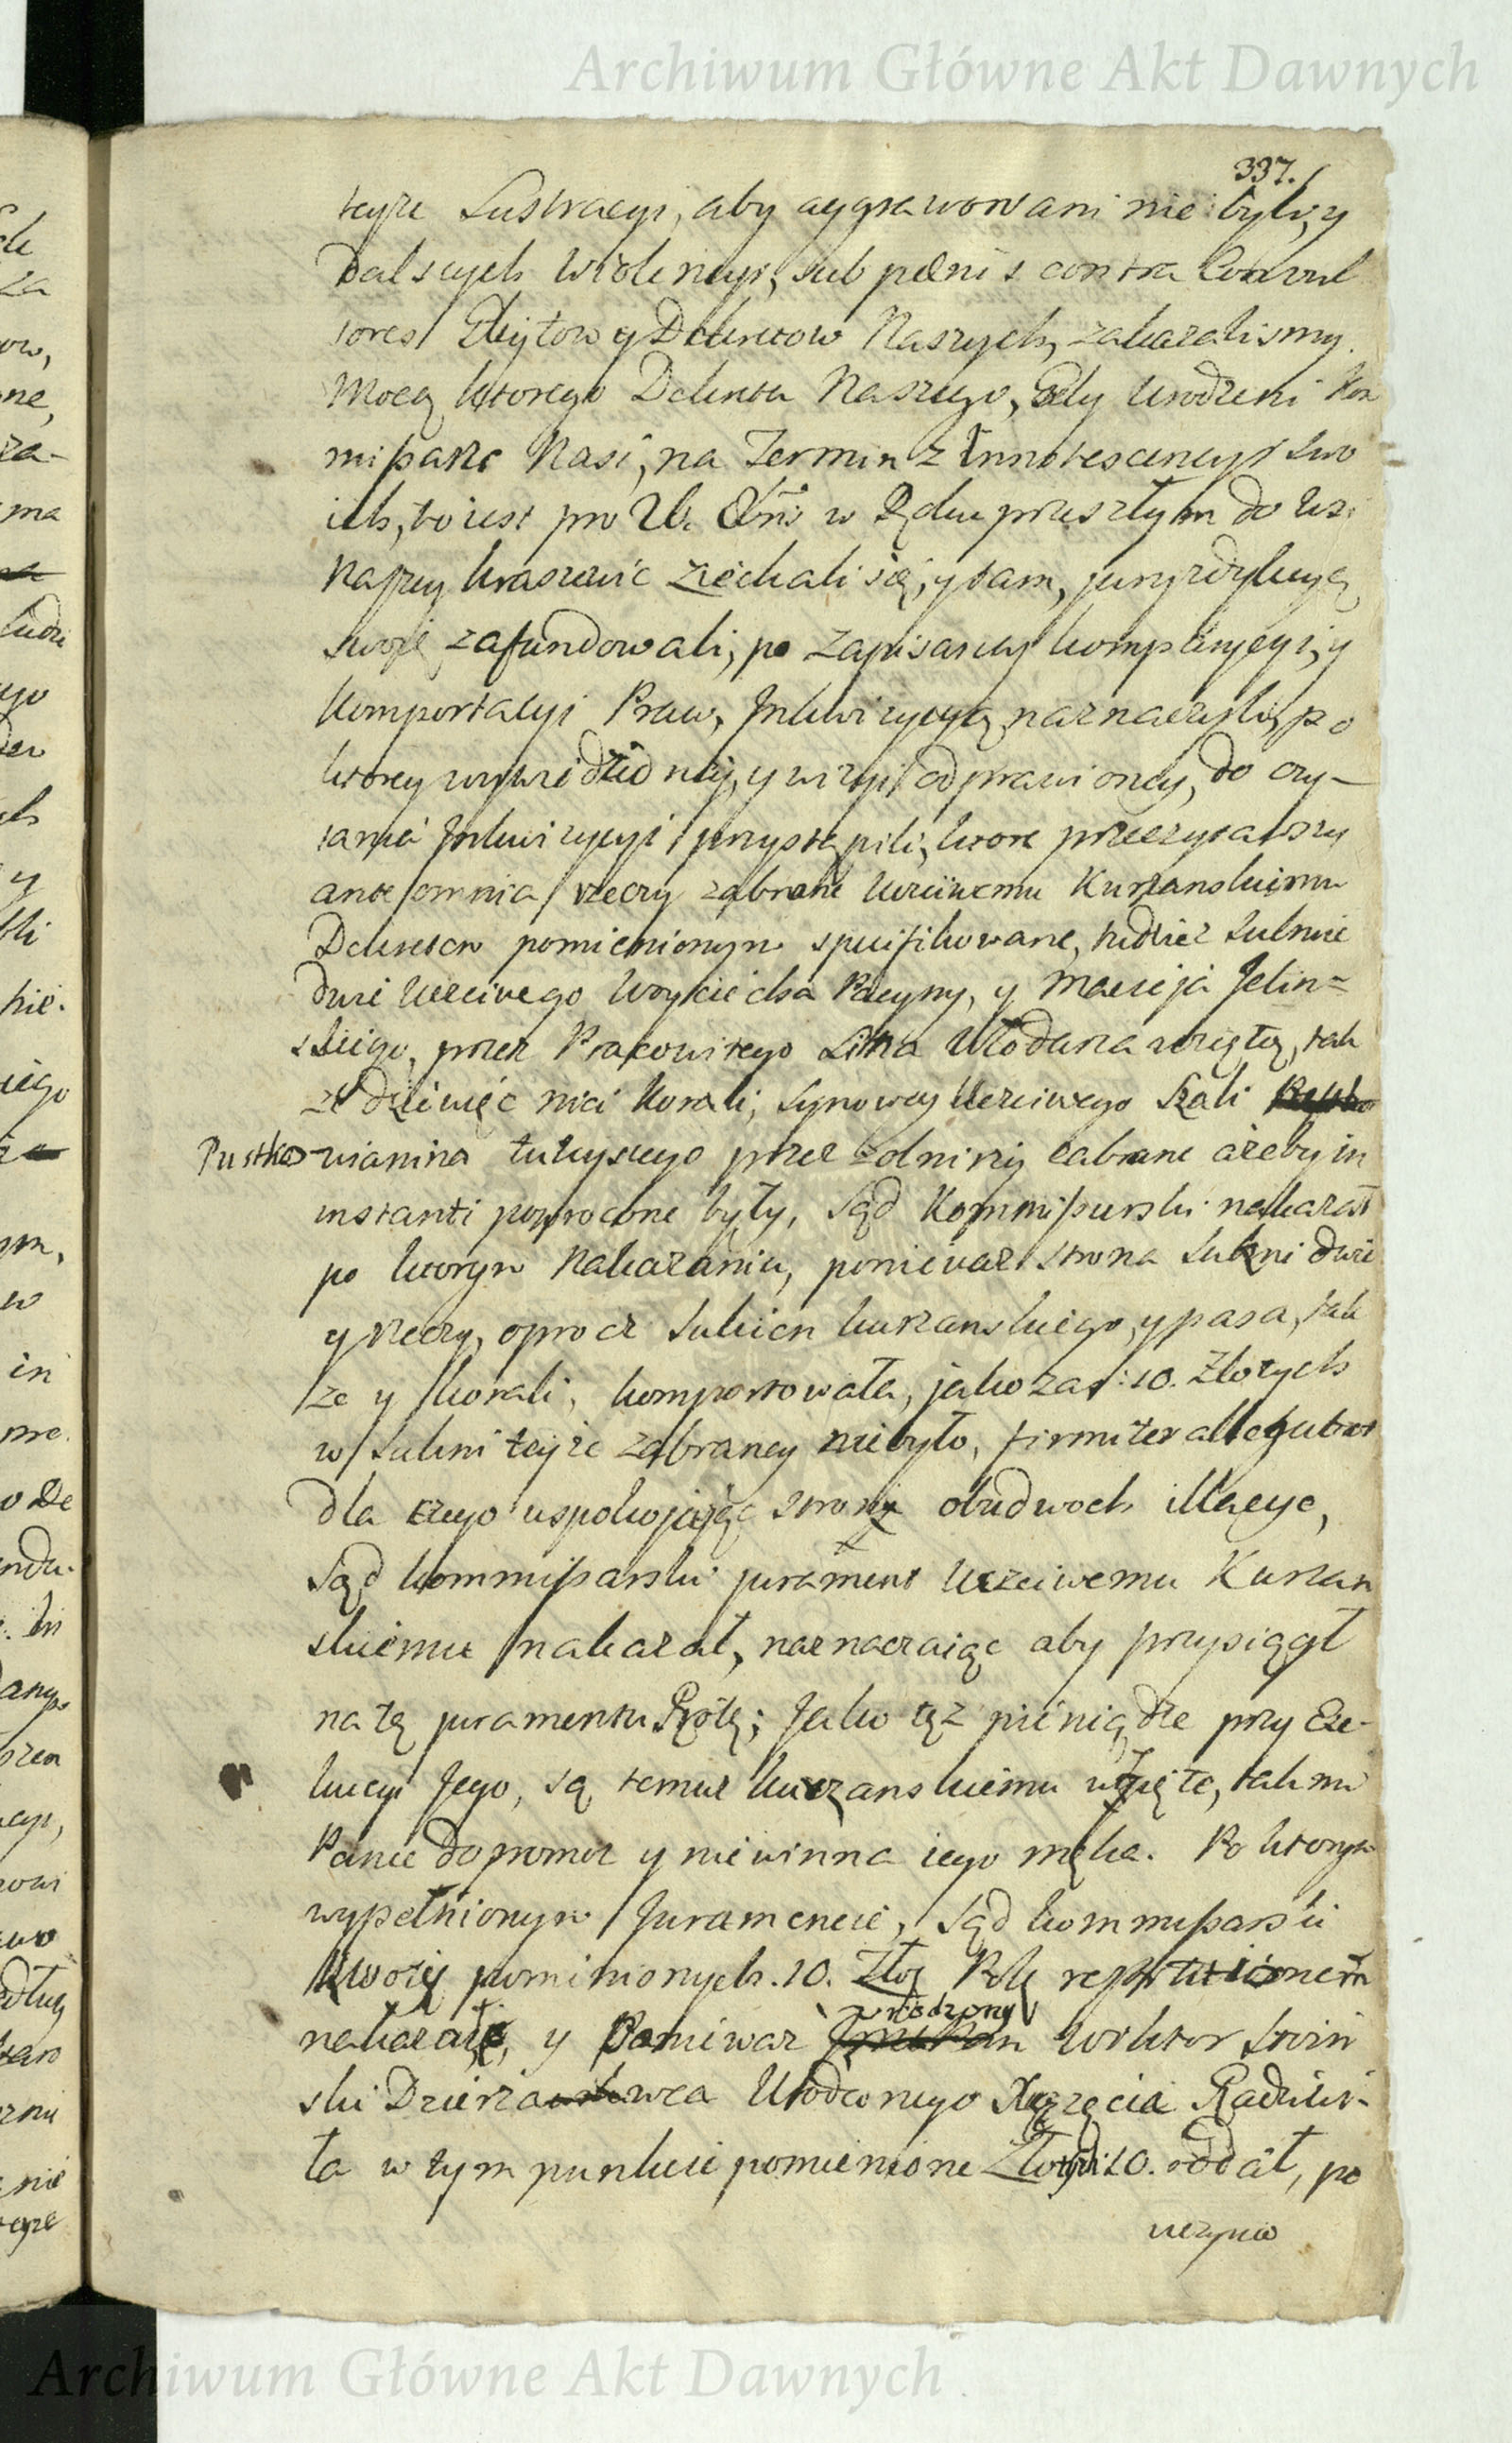 Archiwum Główne Akt Dawnych
337.
teyże Lustracyi, aby aggrawowani nie byli, y
Dalszych Wiolencyi, sub pœnis contra Convul
sores Edyktow y Dekretow Naszych, zakazalismy.
Mocą ktorego Dekretu Naszego, Gdy Urodzeni Kom
missarze Nasi, na Termin z Innotescencyi swo
ich, to iest pro 26. w Roku przeszłym do Wsi
Naszey Kraszewic ziechali się, y tam, juryzdykcyą
swoię zafundowali, po zapisaney komparycyi, y
Komportacyi Praw, Inkwizycyą naznaczyli, po
ktorey wywiedzioney, y wizyi odprawioney, do czy-
tania Inkwizycyi przystąpili, ktore przeczytawszy
ante omnia rzeczy zabrane Uczciwemu Kurzanskiemu
Dekretem pomienionym specifikowane, tudzież suknie
dwie Uczciwego Woyciecha Pacyny, y Macieja Jelin=
skiego, przez Pracowitego Włodarza wziętą, tak
że dziewięc nici Korali, Synowey Uczciwego Szali
Pustko-wianina tuteyszego przez Zołnirzy zabrane ażeby in
instanti powrocone były, Sąd Kommissarski nakazał
po ktorym Nakazaniu, ponieważ strona Sukni dwie
y rzeczy, oprocz Sukien kurzanskiego, y pasa, tak
że y korali, komportowała, jako zaś 10. Złotych
w Sukni teyże zabraney niebyło, firmiter allegabat
dla czego uspokojając strony obudwoch illacye,
Sąd kommissarski jurament Uczciwemu Kurzan
skiemu nakazał, naznaczaiąc aby przysiągł
na tę juramentu Rotę; Jako tęż pieniądze przy Exe-
kucyi Jego, są temuż kurzanskiemu wzięte, tak mi
Panie dopomoz y niewinna iego męka. Po ktorym
wypełnionym Juramencie, Sąd kommissarski
kwotę pomienionych 10. Zło: Pol:
nakazał, y Ponieważ urodzony Wiktor Swin
ski Dzierzawca Urodzonego Xiązęcia Radziwi-
ła w tym punkcie pomienione Złotych 10. oddał, po
uczynio
Archiwum Główne Akt Dawnych